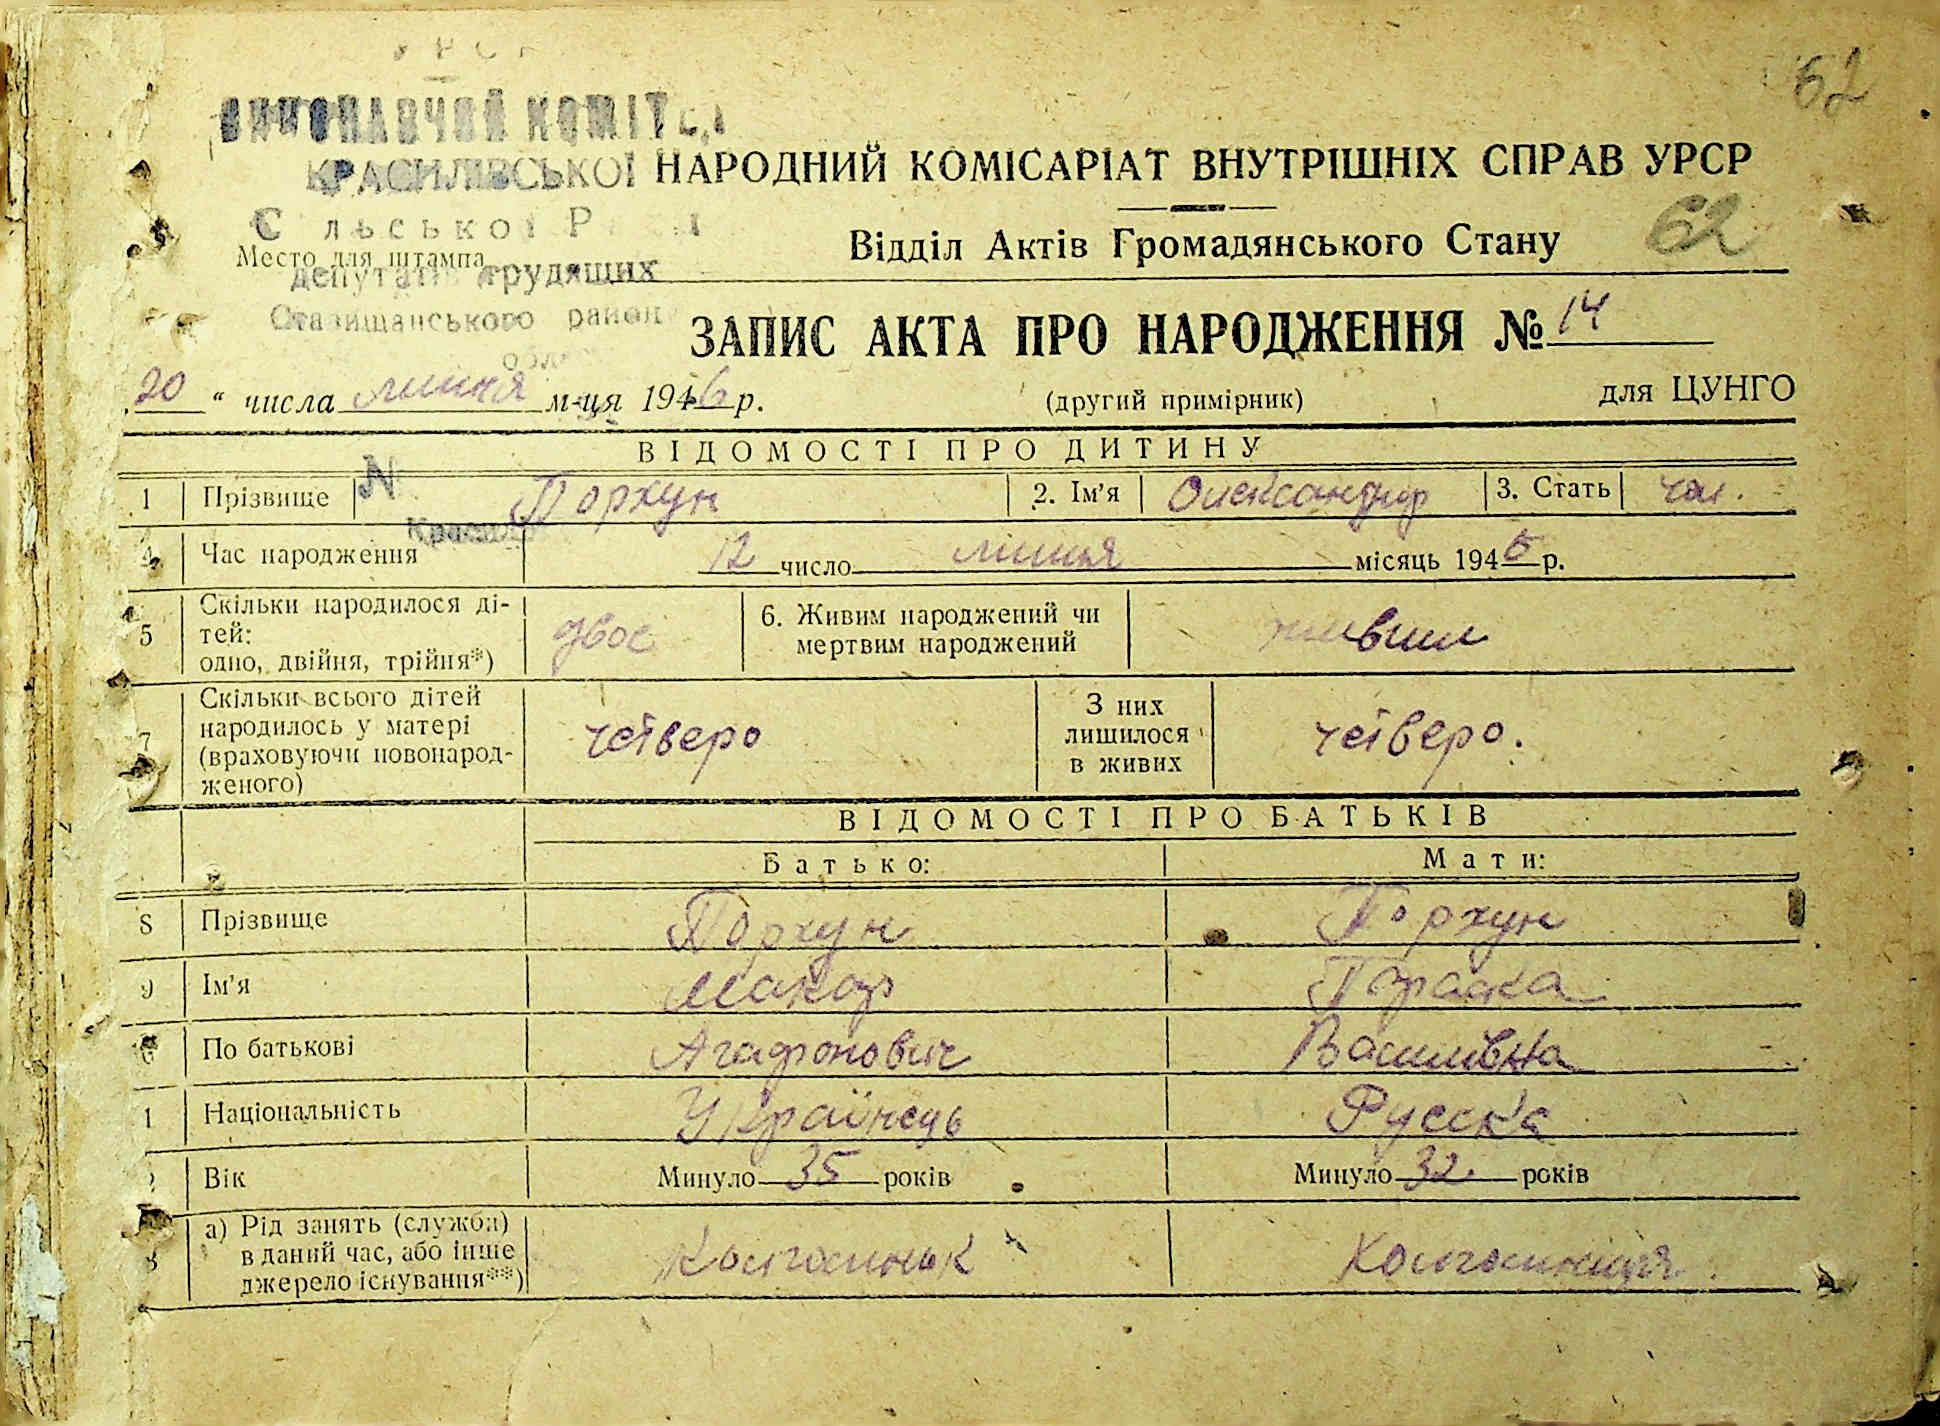 УРСР
62
ВИКОНАВЧИЙ КОМІТЕТ
КРАСИЛІВСЬКОЇ
НАРОДНИЙ КОМІСАРІАТ ВНУТРІШНІХ СПРАВ УРСР
Сільської Ради
Відділ Актів Громадянського Стану
62
Место для штампа
депутатів трудящих
Ставищанського район
ЗАПИС АКТА ПРО НАРОДЖЕННЯ № 14
20 " числа липня м-ця 1946 р.
(другий примірник)
для ЦУНГО
ВІДОМОСТІ ПРО ДИТИНУ
N
1 Прізвище Порхун 2. Ім'я Олександр 3. Стать чол.
4 Час народження 12 число липня місяць 1946 р.
5 Скільки народилося ді-
тей:
одно, двійня, трійня*) двоє
6. Живим народжений чи
мертвим народжений живим
7 Скільки всього дітей
народилось у матері
(враховуючи новонарод-
женого) четверо
З них
лишилося
в живих четверо.
ВІДОМОСТІ ПРО БАТЬКІВ
Батько: Мати:
8 Прізвище Порхун Порхун
9 Ім'я Макар Параска
По батькові Агафонович Василівна
1 Національність Українець Русска
Вік Минуло 35 років Минуло 32 років
а) Рід занять (служби)
в даний час, або інше
джерело існування**) Колгоспник Колгоспниця